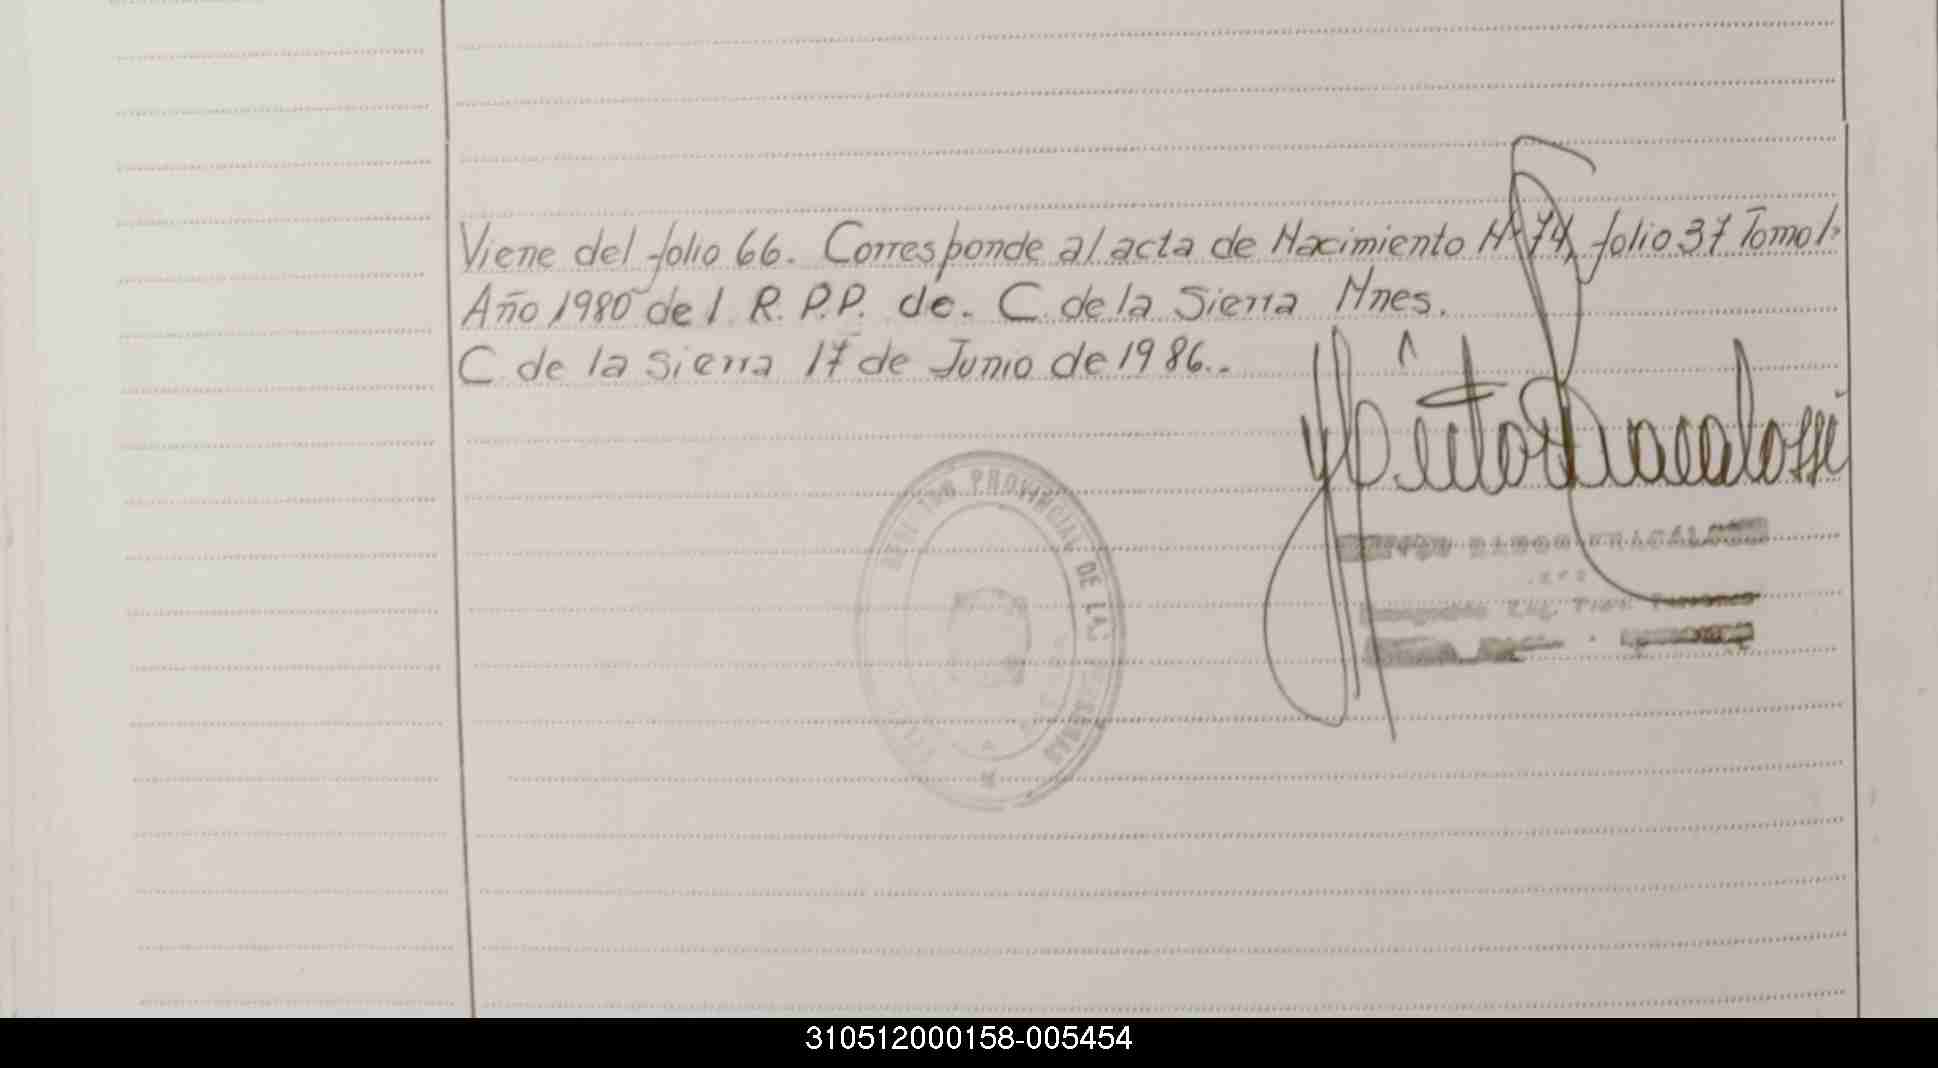 Viene del folio 66. Corresponde al acta de Nacimiento Nº 74, folio 37 Tomo 1º
Año 1980 del R.P.P. de. C. de la Sierra Mnes.
C. de la Sierra 17 de Junio de 1986..
PROVINCIAL DE LAS
FRACALOSSI
310512000158-005454